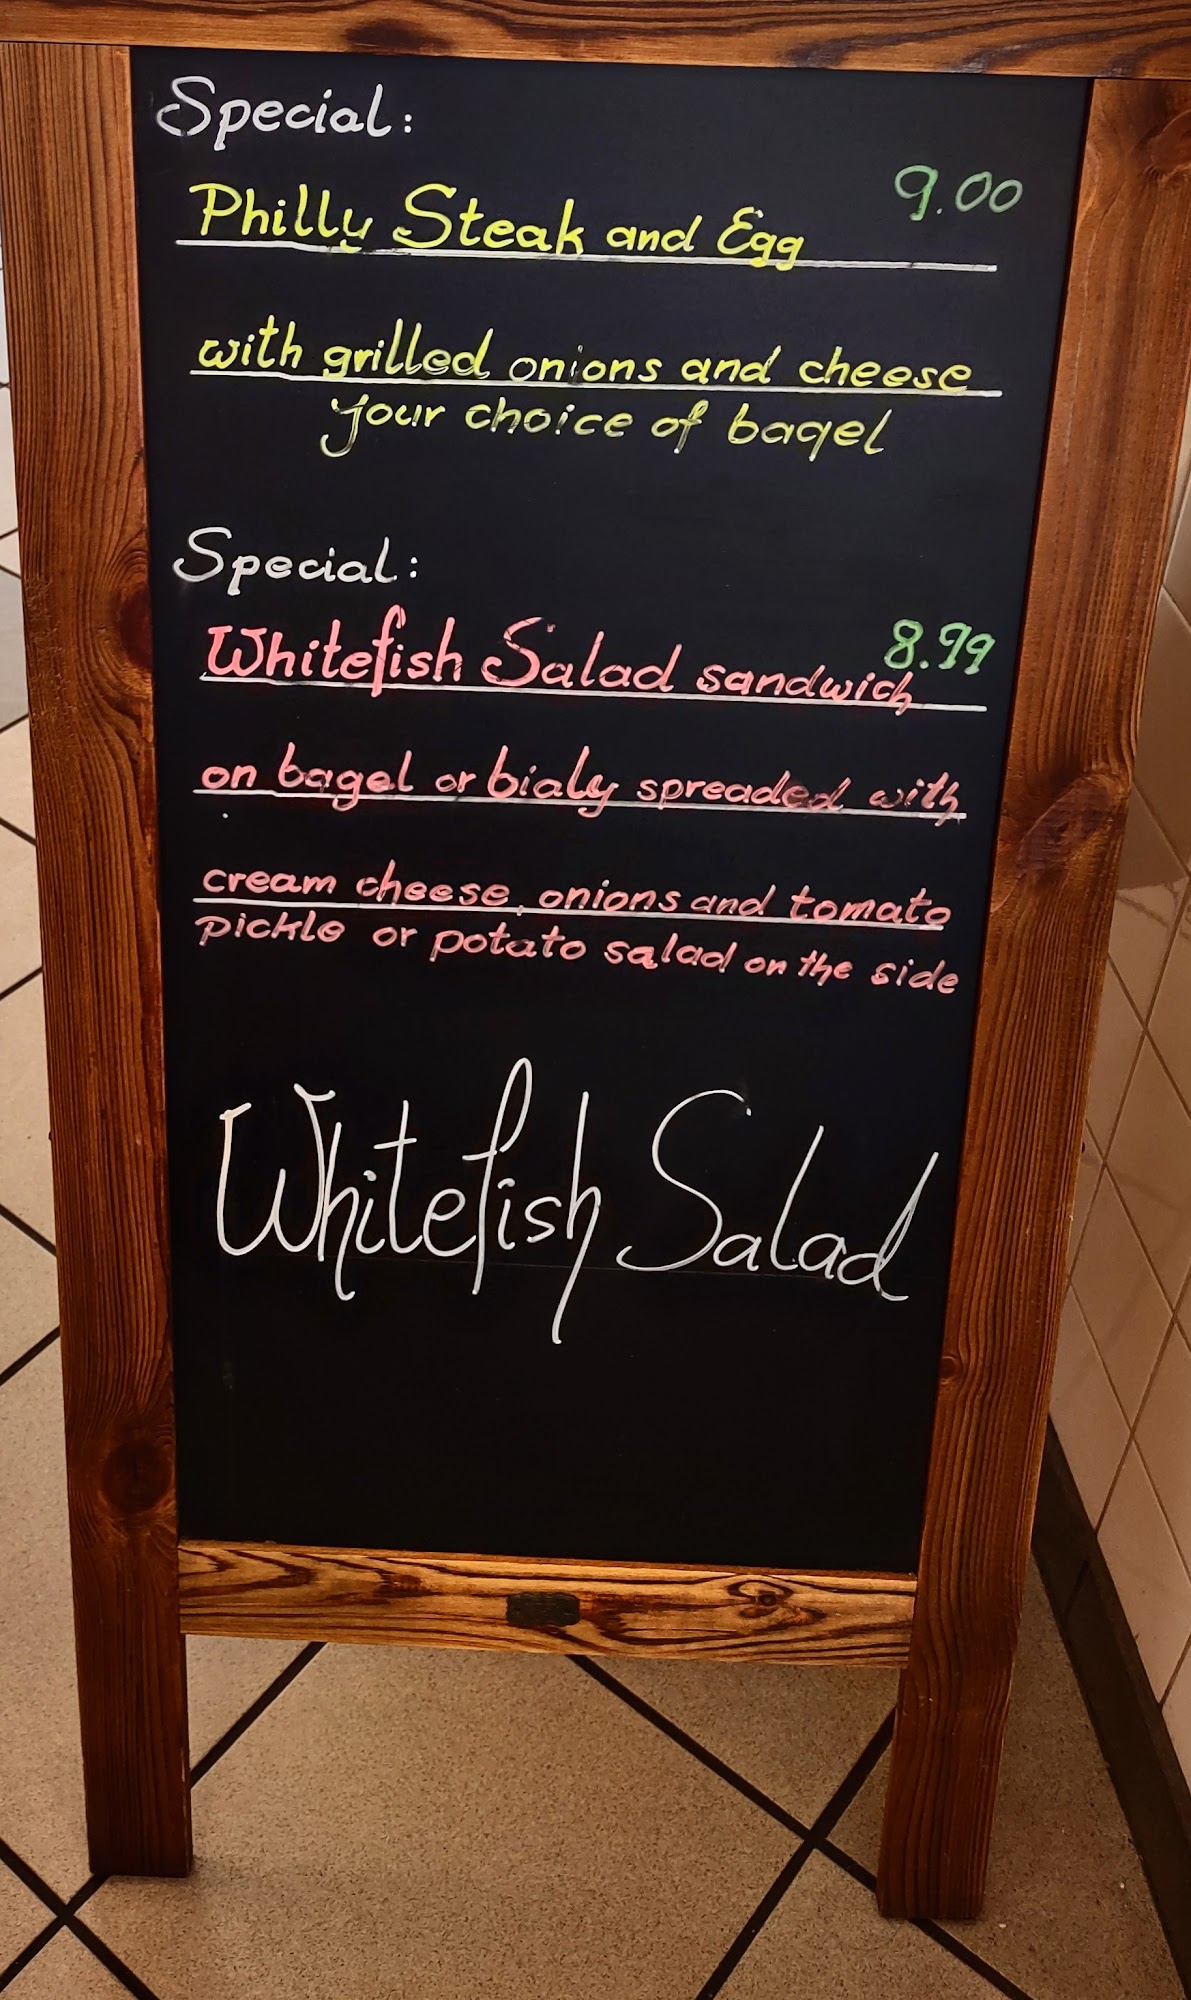 Special:
Philly Steak and Egg 9.00
with grilled onions and cheese
your choice of bagel
Special:
Whitefish Salad sandwich 8.99
on bagel or bialy spreaded with
cream cheese, onions and tomato
pickle or potato salad on the side
Whitefish Salad